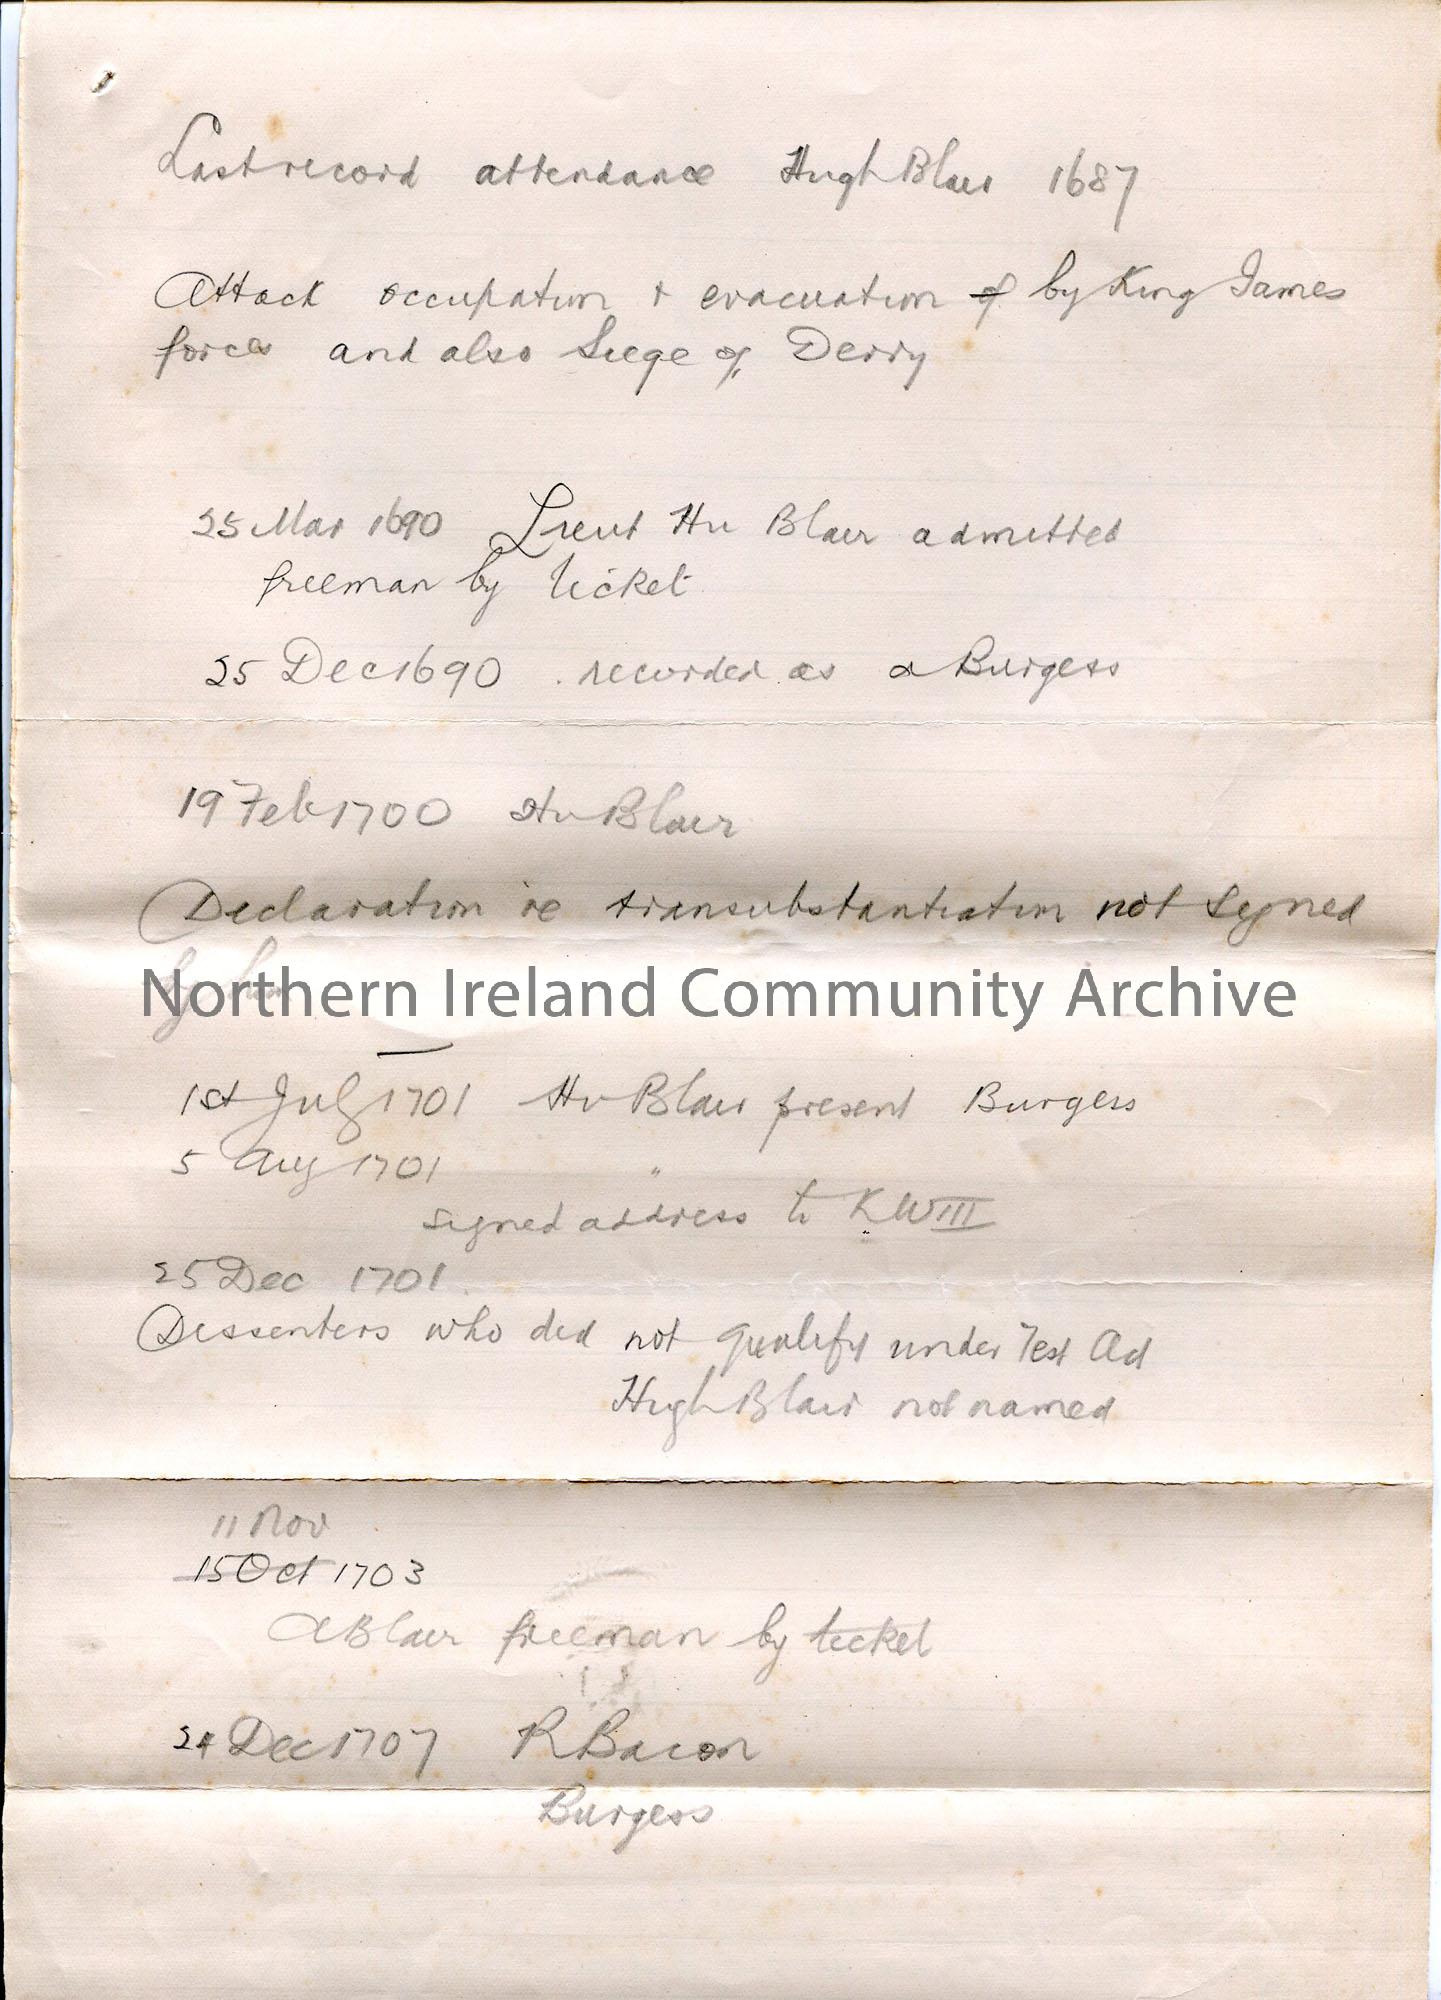 Last record attendance Hugh Blair 1687
Attack occupation + evacuation of by King James
forces and also Siege of Derry
25 Mar 1690 Lieut Hu Blair admitted
freeman by ticket
25 Dec 1690 . recorded as a Burgess
19 Feb 1700 Hu Blair
Declaration re transubstantiation not signed
by him
Northern Ireland Community Archive
1st July 1701 Hu Blair present Burgess
5 Aug 1701 "
signed address to K W III
25 Dec 1701.
Dissenters who did not qualify under Test Act
Hugh Blair not named
11 Nov
15 Oct 1703
A Blair freeman by ticket
24 Dec 1707 R Bacon
Burgess